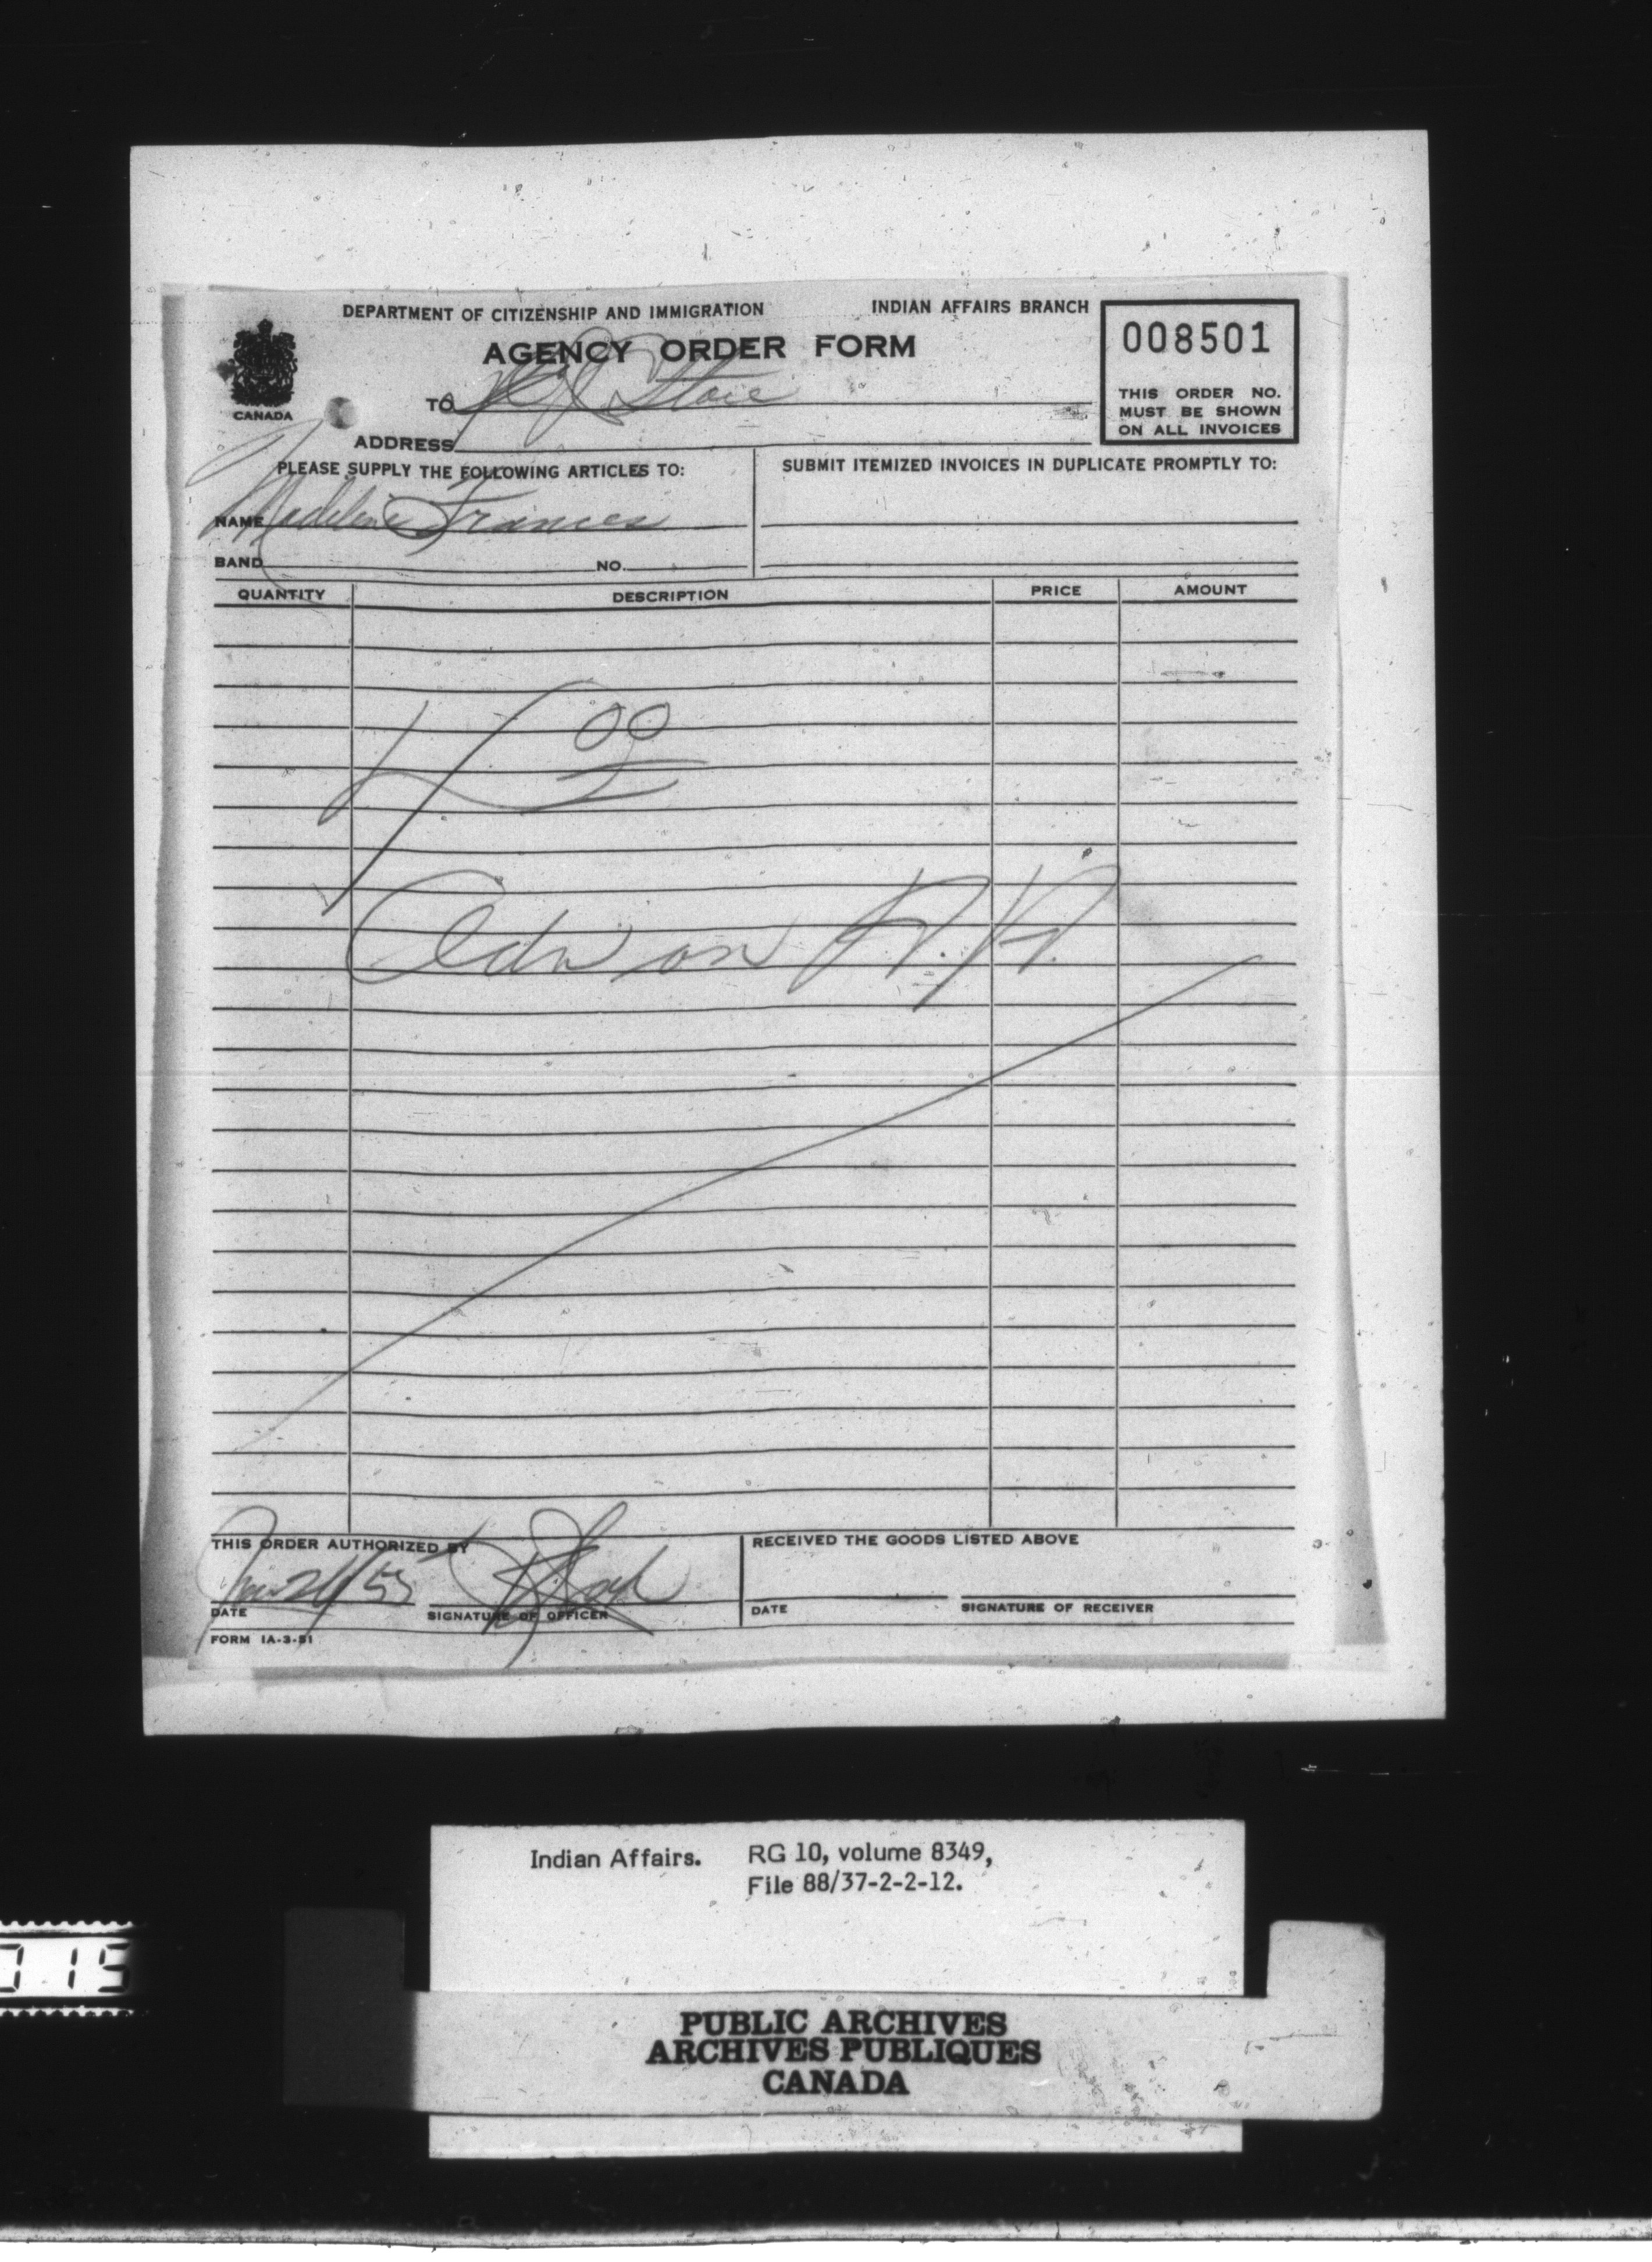 DEPARTMENT OF CITIZENSHIP AND IMMIGRATION INDIAN AFFAIRS BRANCH
AGENCY ORDER FORM
008501
THIS ORDER NO.
MUST BE SHOWN
ON ALL INVOICES
CANADA
TO Store
ADDRESS
PLEASE SUPPLY THE FOLLOWING ARTICLES TO:
SUBMIT ITEMIZED INVOICES IN DUPLICATE PROMPTLY TO:
NAME Madeline Frances
BAND NO.
QUANTITY DESCRIPTION PRICE AMOUNT
00
Adv on
THIS ORDER AUTHORIZED BY
RECEIVED THE GOODS LISTED ABOVE
DATE SIGNATURE OF OFFICER DATE SIGNATURE OF RECEIVER
FORM IA-3-51
Indian Affairs. RG 10, volume 8349,
File 88/37-2-2-12.
PUBLIC ARCHIVES
ARCHIVES PUBLIQUES
CANADA